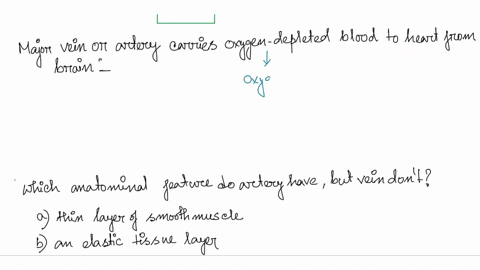 Major vein or artery carries oxygen-depleted blood to heart from
brain :-
oxyg
Which anatominal feature do artery have, but vein don't?
a) thin layer of smooth muscle
b) an elastic tissue layer